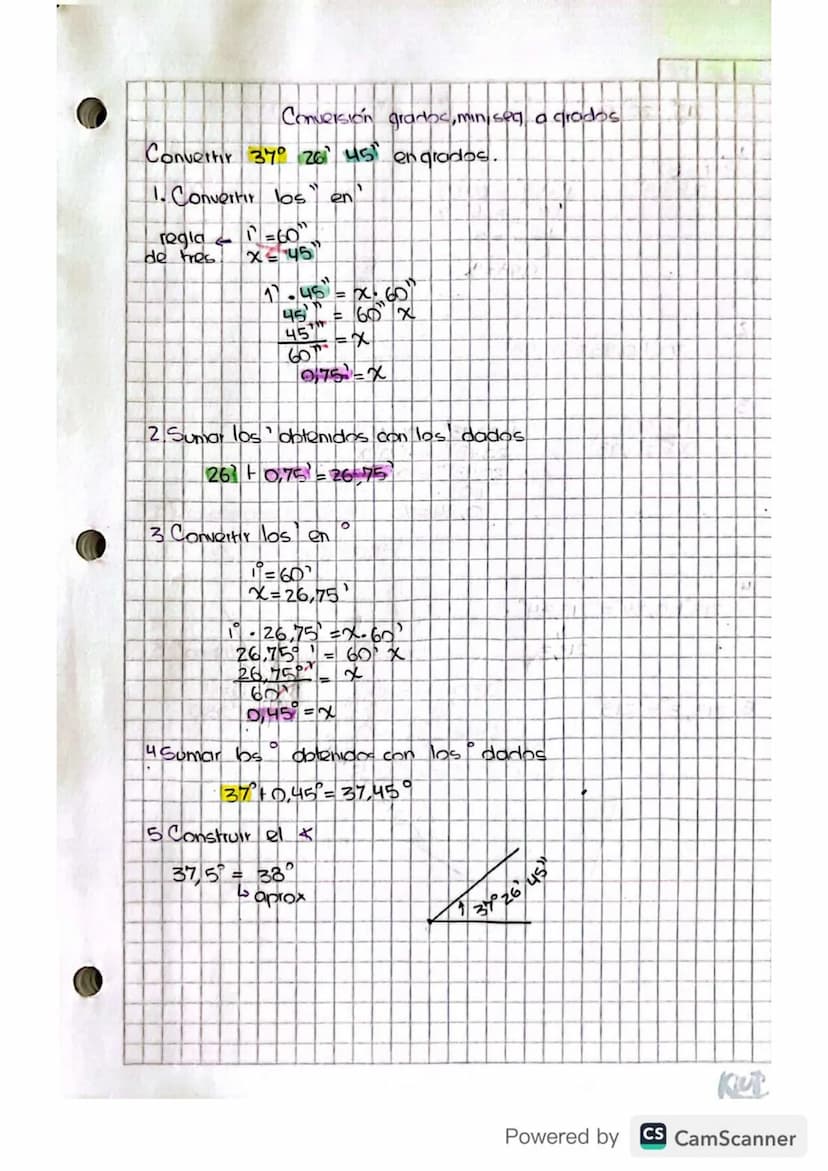 Conversión grados, min, seg, a grados
Convertir 37° 26' 45" en grados.
1. Convertir los " en '
regla ← 1' = 60"
de tres. x = 45"
1' . 45" = x . 60"
45'" = 60" x
45'" = x
60"
0,75' = x
2. Sumar los ' obtenidos con los ' dados
26' + 0,75' = 26,75'
3 Convertir los ' en °
1° = 60'
x = 26,75'
1° . 26,75' = x . 60'
26,75° ' = 60' x
26,75° ' = x
60'
0,45° = x
4 Sumar los ° obtenidos con los ° dados
37° + 0,45° = 37,45°
5 Construir el ∢
37,5° = 38°
↳ aprox
37° 26' 45"
Powered by CS CamScanner